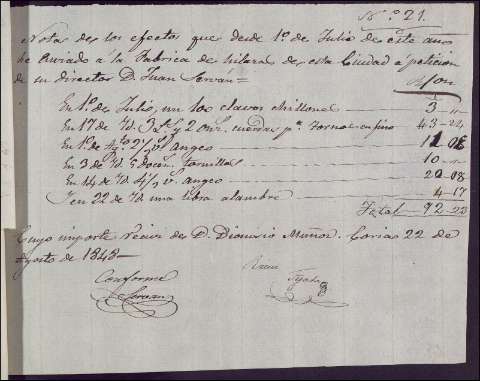 Nº 21.
Nota de los efectos que desde 1º de Julio de este año
he enviado á la Fabrica de hilar de esta Ciudad a peticion
de su director D. Juan Serván =
En 1º de Julio, un los clavos chillones 3
En 17 de Id. 3 y 2 onz. cuerdas pª tornos en fino 43 - 22
En 1º de 2 1/2 vª angeo 11 08
En 3 de Id. 5 docªˢ tornillos 10
En 14 de Id. 4 1/2 vª angeo 20 - 08
Y en 22 de Id. una libra alambre 4 - 17
Total 92 - 23
Cuyo importe reciví de D. Dionisio Muñoz. Coria 22 de
Agosto de 1843 =
Conforme
Servan